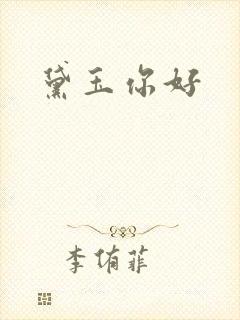 黛玉你好
李侑菲